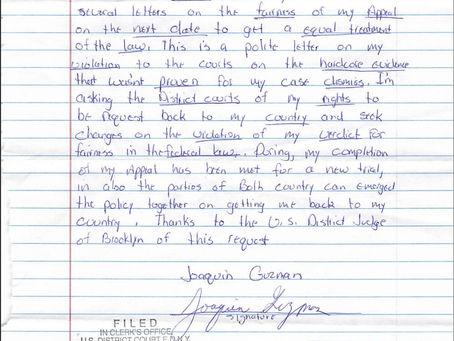 several letters on the fairness of my Appeal
on the next date to get a equal treatment
of the law. This is a polite letter on my
violation to the courts on the hardcore evidence
that wasn't proven for my case dismiss. I'm
asking the District courts of my rights to
be request back to my country and seek
changes on the violation of my verdict for
fairness in the federal law. During, my completion
of my Appeal has been met for a new trial,
in also the parties of Both country can emerged
the policy together on getting me back to my
country. Thanks to the U.S. District Judge
of Brooklyn of this request
Joaquin Guzman
signature
FILED
IN CLERK'S OFFICE
U.S. DISTRICT COURT E.D.N.Y.